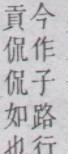 今作子路行
貢侃侃如也